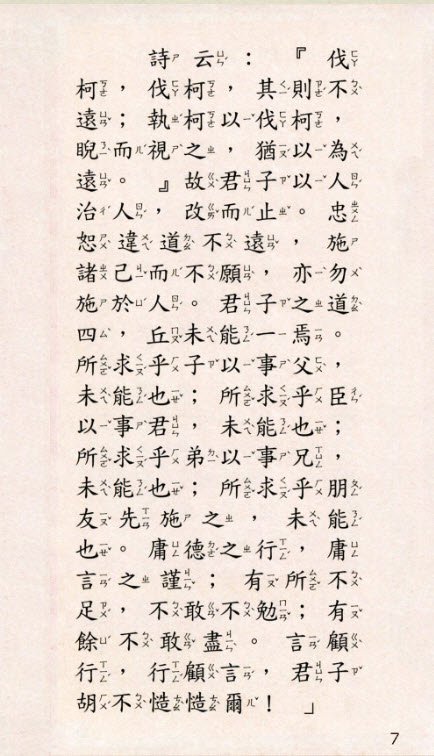 詩云：『伐
柯，伐柯，其則不
遠；執柯以伐柯，
睨而視之，猶以為
遠。』故君子以人
治人，改而止。忠
恕違道不遠，施
諸己而不願，亦勿
施於人。君子之道
四，丘未能一焉。
所求乎子以事父，
未能也；所求乎臣
以事君，未能也；
所求乎弟以事兄，
未能也；所求乎朋
友先施之，未能
也。庸德之行，庸
言之謹；有所不
足，不敢不勉；有
餘不敢盡。言顧
行，行顧言，君子
胡不慥慥爾！」
7